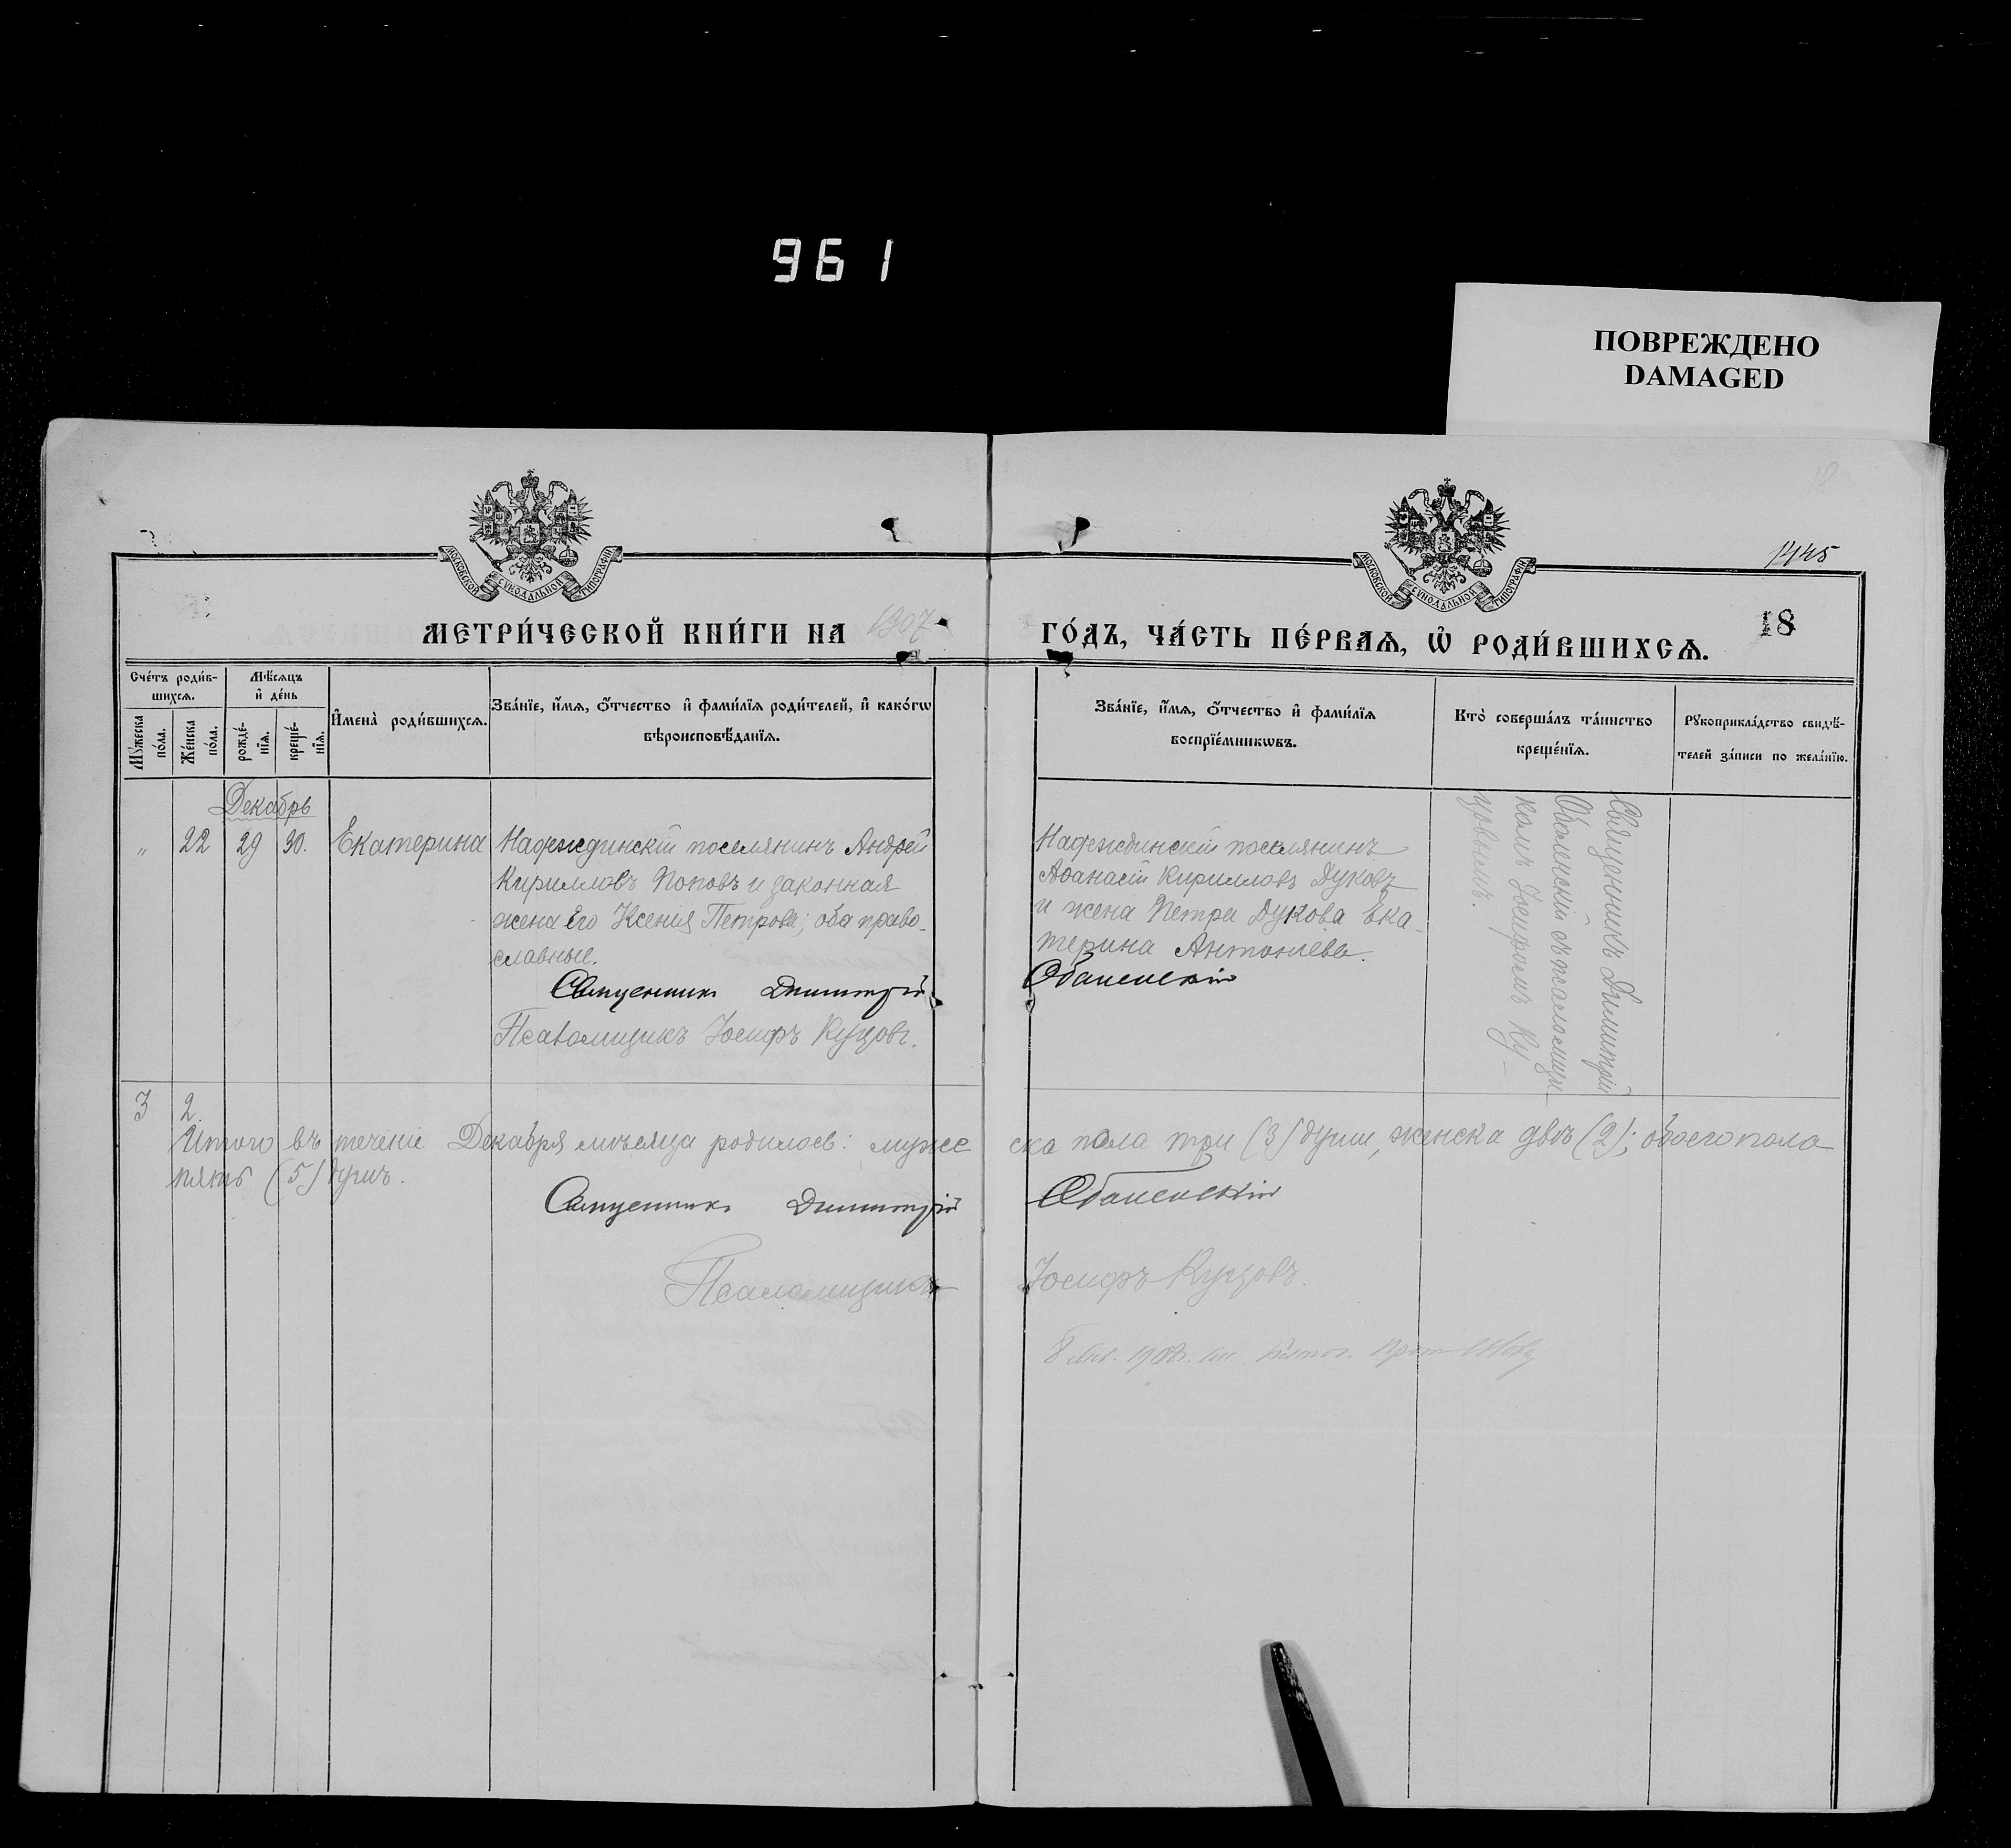 961
ПОВРЕЖДЕНО
DAMAGED
МОСКОВСКОЙ СУНОДАЛЬНОЙ ТИПОГРАФІИ
МОСКОВСКОЙ СУНОДАЛЬНОЙ ТИПОГРАФІИ
18
МЕТРИ́ЧЕСКОЙ КНИ́ГИ НА 1907
ГО́ДЪ, ЧА́СТЬ ПЕ́РВАѦ, Ѡ РОДИ́ВШИХСѦ.
Сче́тъ роди́в-
шихсѧ.
Мѣ́сѧцъ
и де́нь
Му́жеска по́ла.
Же́нска по́ла.
рожде́-
нїѧ.
креще́-
нїѧ.
Имена̀ роди́вшихсѧ.
Зва́нїе, и́мѧ, ѻ́тчество и фами́лїѧ роди́телей, и како́гѡ
вѣроисповѣ́данїѧ.
Зва́нїе, и́мѧ, ѻ́тчество и фами́лїѧ
воспрїе́мникѡвъ.
Кто̀ соверша́лъ та́инство
креще́нїѧ.
Рꙋкоприкла́дство свидѣ́-
телей за́писи по жела́нїю.
Декабрь
„ 22 29 30. Екатерина
Надеждинскій поселянинъ Андрей
Кирилловъ Поповъ и законная
жена Его Ксенія Петрова; оба право-
славные.
Священникъ Димитрій Оболенскій
Псаломщикъ Іосифъ Куцовъ.
Надеждинскій поселянинъ
Аѳанасій Кирилловъ Дуковъ
и жена Петра Дукова Ека-
терина Антоніева.
Священникъ Димитрій
Оболенскій съ псаломщи-
комъ Іосифомъ Ку-
цовымъ.
3 2.
Итого въ теченіе Декабря мѣсяца родилось: муже ска пола три (3) души, женска двѣ (2); обоего пола
пять (5) душъ.
Священникъ Димитрій Оболенскій
Псаломщикъ Іосифъ Куцовъ.